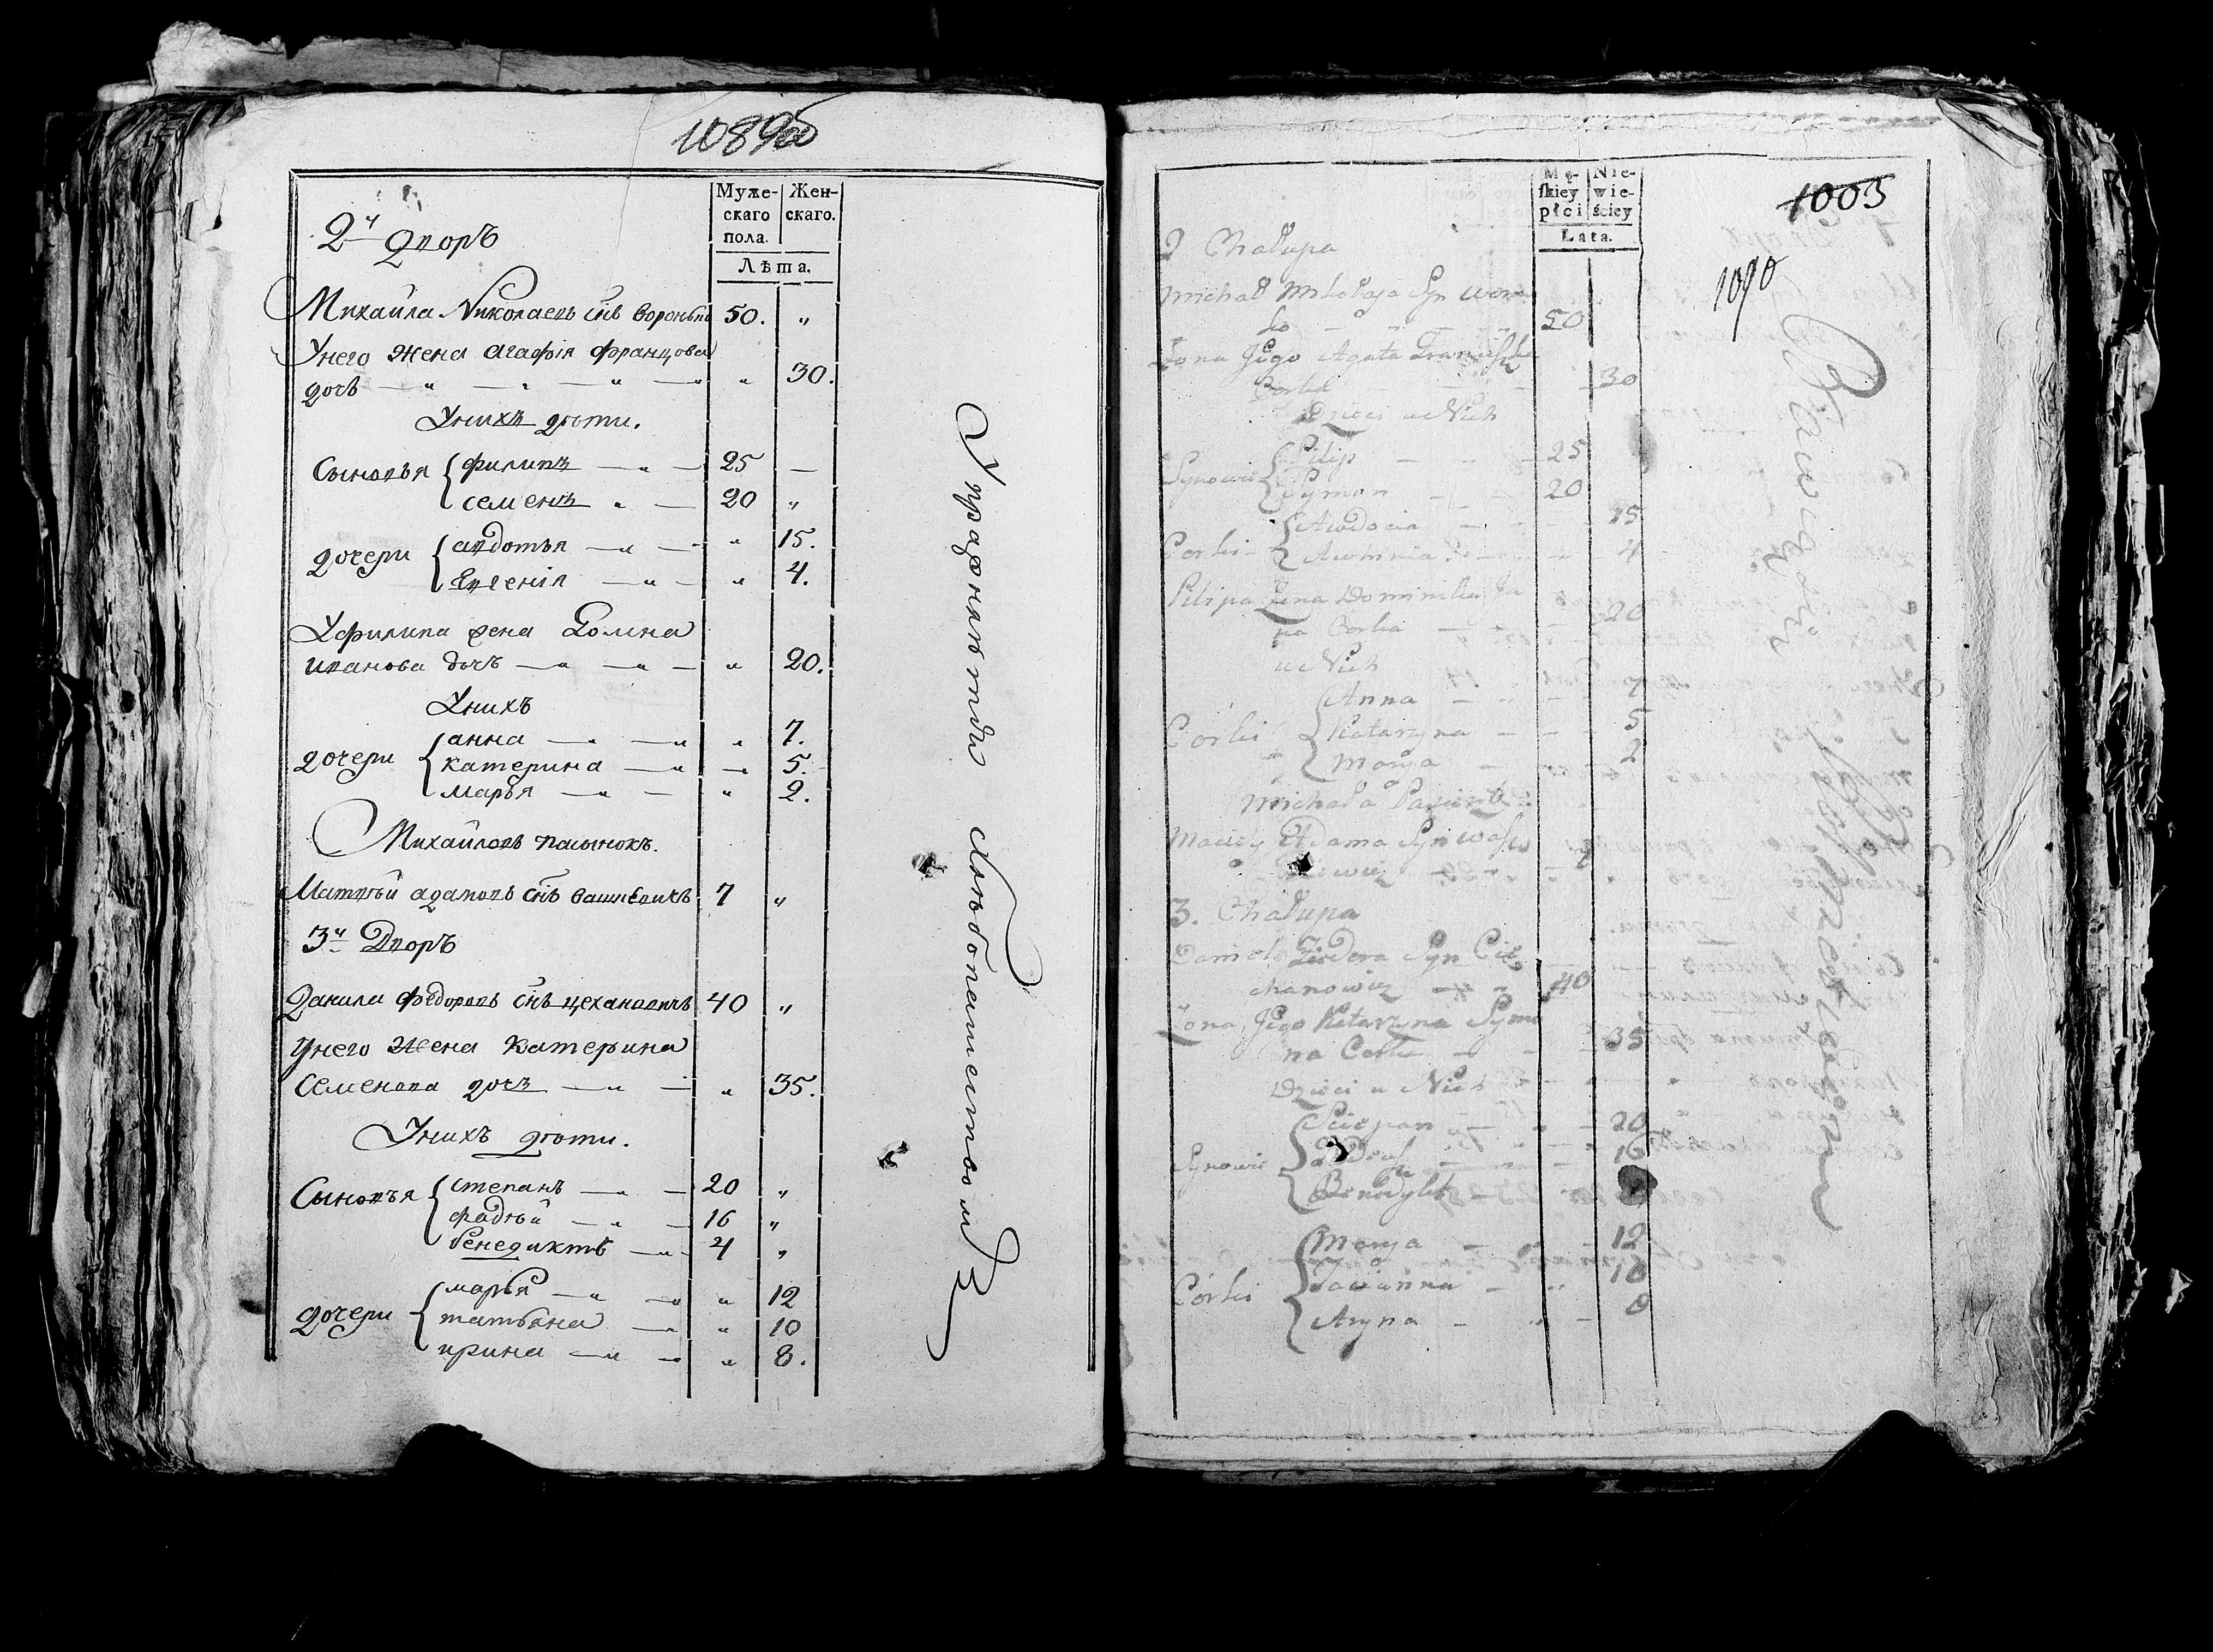 1089об
Муже-
скаго
пола.
Жен-
скаго.
Лѣта.
2й Дворъ
Михайла Николаевъ снъ Воронько 50. "
Унего жена агафiя францова
дочь " 30.
Унихъ дѣти.
Сыновья { филипъ 25 —
семенъ 20 "
дочери { авдотья " 15.
Евгенiя " 4.
Уфилипа жена Домна
иванова дочь " 20.
Унихъ
дочери { анна " 7.
катерина 5.
марья " 2.
Михайловъ пасынокъ.
Матвѣй адамовъ снъ вашкевичъ 7 "
3й Дворъ
Данила Федоровъ снъ цехановичъ 40 "
Унего жена катерина
Семенова дочь " 35.
Унихъ дѣти.
Сыновья { степанъ 20 "
фадѣй 16 "
бенедиктъ 4 "
дочери { марья " 12
татьяна " 10
ирина " 8.
1003
1090
Mę-
skiey
płci
Nie-
wie-
ściey
Lata.
2 Chałupa
Michał Mikołaja Syn Woron
ko 50
Żona Jego Agata Franciszka
Corka 30
Dzieci u Nich
Synowie { Pilip 25
Symon 20
Corki { Awdocia 15
4
Pilipa Żona Dominika Ja
na Corka 20
u Nich
Corki { Anna 7
Katarzyna 5
Marja 2
Michała Pasierb
Maciey Adama Syn Wasz
kiewicz 7
3. Chałupa
Daniel Fiodora Syn Cie
chanowicz 40
Żona Jego Katarzyna Symo
na Corka 35
Dzieci u Nich
Synowie { Sciepan 20
Tadeusz 16
Benedykt
Córki { Marja 12
Tacianna 10
Aryna 8